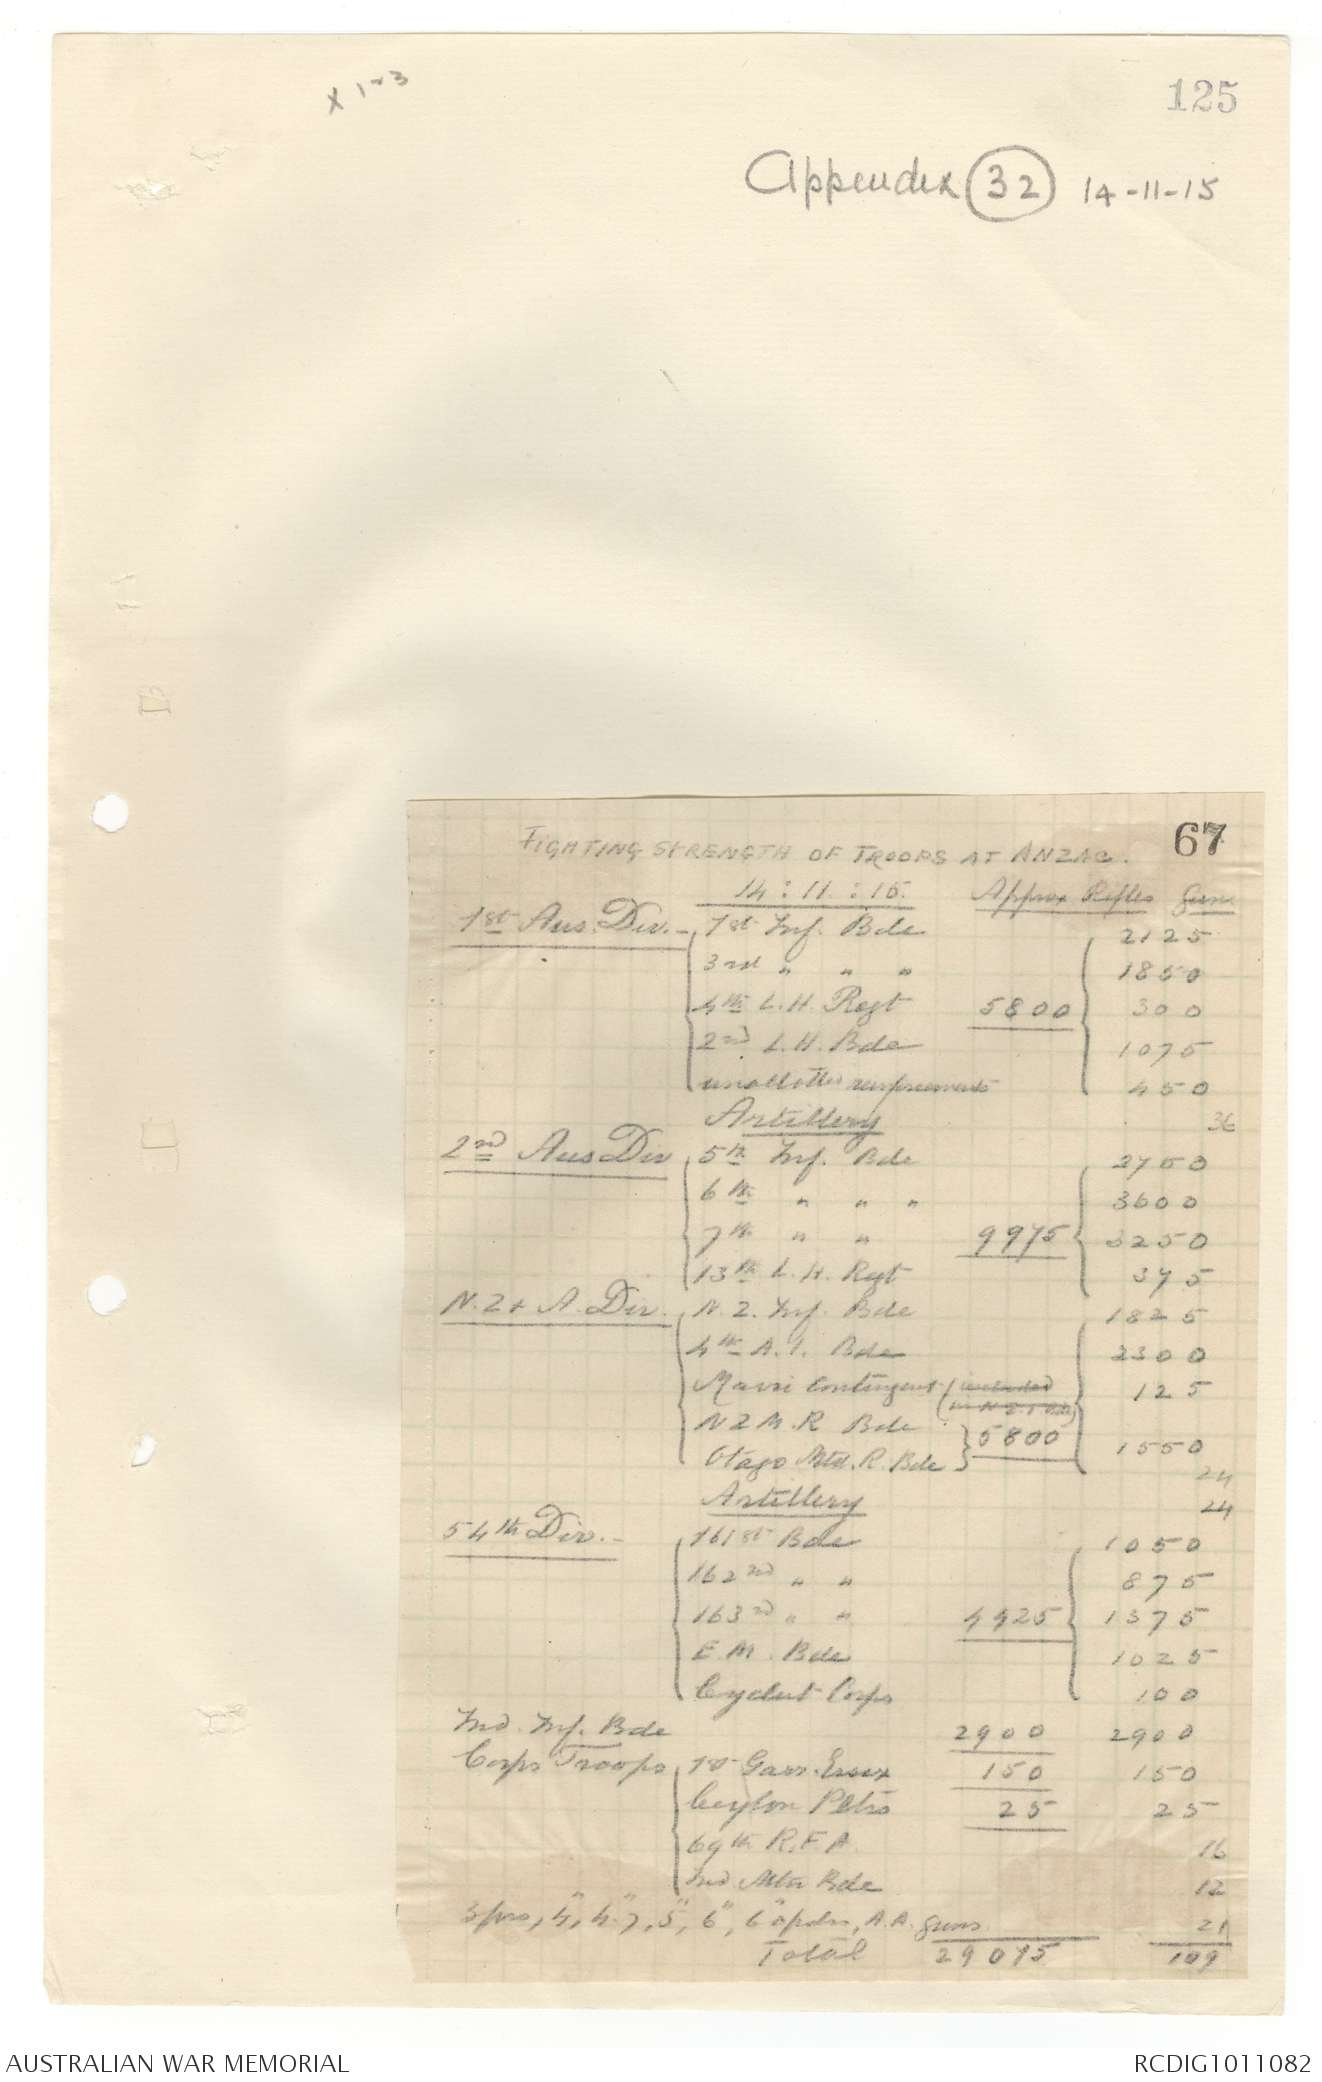 x 1-3
125
Appendix 32 14-11-15
67
FIGHTING STRENGTH OF TROOPS AT ANZAC.
14 : 11 : 15. Approx Rifles Guns
1st Aus. Div. - 1st Inf. Bde 2125
3rd " " " 1850
4th L.H. Regt 5800 300
2nd L.H. Bde 1075
unallotted reinforcements 450
Artillery 36
2nd Aus Div 5th Inf. Bde 2750
6th " " " 3600
7th " " 9975 3250
13th L.H. Regt 375
N.Z & A. Div. N.Z. Inf. Bde 1825
4th A.I. Bde 2300
Maori Contingent (included 125
in N.Z.I. Bde)
N Z M. R Bde 5800
Otago Mtd. R. Bde 1550
24
Artillery 24
54th Div. - 161st Bde 1050
162nd " " 875
163rd " " 4425 1375
E.M. Bde 1025
Cyclist Corps 100
Ind. Inf. Bde 2900 2900
Corps Troops 1st Garr. Essex 150 150
Ceylon Pltrs 25 25
69th R.F.A. 16
Ind. Mtn Bde 12
3 prs, 4", 4.7, 5", 6", 6" , A.A. guns 21
Total 29075 109
AUSTRALIAN WAR MEMORIAL RCDIG1011082